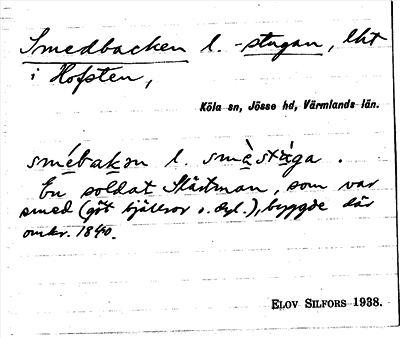 Smedbacken l. -stugan, lht
i Hofsten,
Köla sn, Jösse hd, Värmlands län.
smébakən l. smèstùga.
En soldat, som var
smed (göt bjällror o. dyl.), byggde där
omkr. 1840.
ELOV SILFORS 1938.